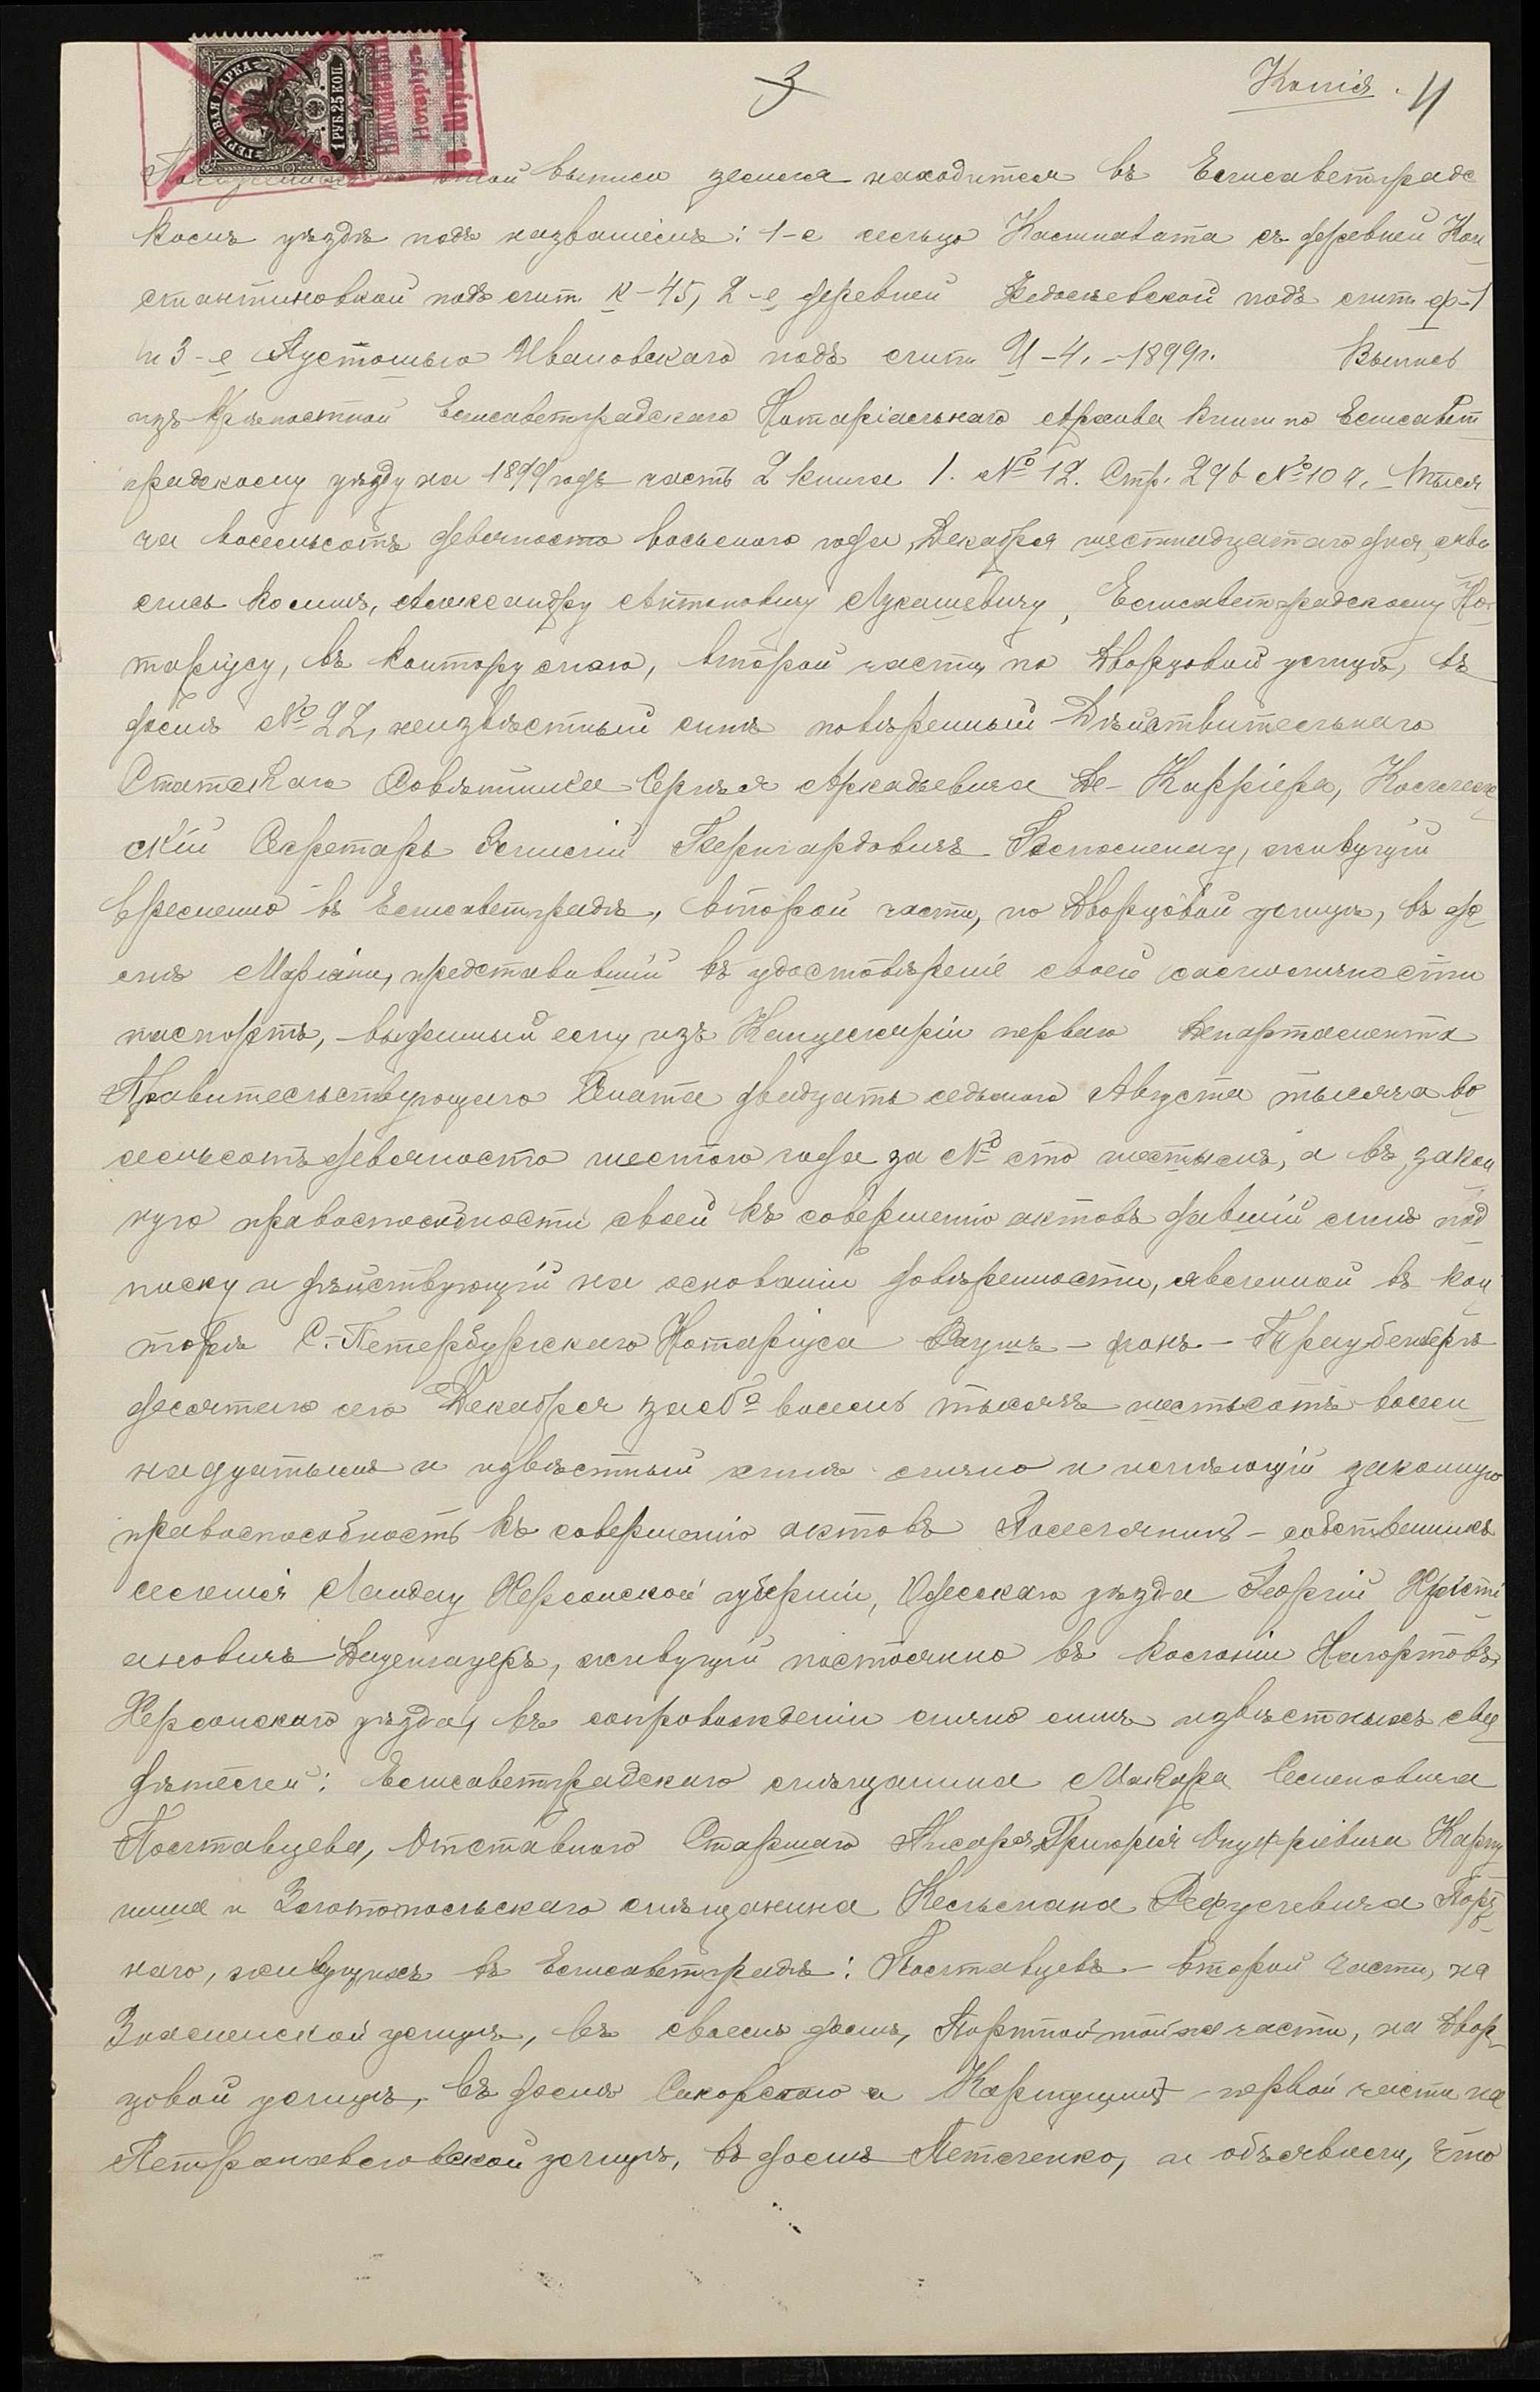 3
Копія. 4
ГЕРБОВАЯ МАРКА
1 РУБ. 25 КОП.
Николаевскій
Нотаріусъ
этой выписи земля находится въ Елисаветградс
комъ уѣздѣ подъ названіемъ: 1-е сельцо Камноватa съ деревней Кон
стантиновкой подъ лит. К-45, 2-е деревней Федосѣевской подъ лит. Ф-1
и 3-е Пустошью Ивановскаго подъ лит. И-4. -1899г. Выпись
изъ крѣпостной Елисаветградскаго Нотаріальнаго Архива книги по Елисавет
градскому уѣзду на 1899 годъ часть 2 книга 1. № 12. Стр. 296 № 109. Тыся
ча восемьсотъ девяносто восьмого года, Декабря шестнадцатаго дня, яви
лись ко мнѣ, Александру Антоновичу Лукашевичу, Елисаветградскому Но
таріусу, въ контору мою, второй части, по Дворцовой улицѣ, въ
домѣ № 22, неизвѣстный мнѣ повѣренный Дѣйствительнаго
Статскаго Совѣтника Сергѣя Аркадьевича Де-Карріера, Коллежс
скій Секретарь Эмилій Бернгардовичъ живущій
временно въ Елисаветградѣ, второй части, по Дворцовой улицѣ, въ до
мѣ Маріани, представившій въ удостовѣреніе своей самоличности
паспортъ, выданный ему изъ Канцеляріи перваго Департамента
Правительствующаго Сената двадцать седьмого Августа тысяча во
семьсотъ девяносто шестого года за № сто шестымъ, а въ закон
ную правоспособности своей къ совершенію актовъ давшій мнѣ под
писку и дѣйствующій на основаніи довѣренности, явленной въ кон
торѣ С.-Петербургскаго Нотаріуса Раушъ-фонъ-Траубенбергъ
десятаго сего Декабря за № восемь тысячъ шестьсотъ восем
надцатымъ и извѣстный мнѣ лично и имѣющій законную
правоспособность къ совершенію актовъ Поселянинъ-собственникъ
селенія Ландау Херсонской губерніи, Одесскаго уѣзда Георгій Христі
ановичъ живущій постоянно въ колоніи Нагортовъ,
Херсонскаго уѣзда, въ сопровожденіи лично мнѣ извѣстныхъ сви
дѣтелей: Елисаветградскаго мѣщанина Макара Семеновича
Полтавцева, Отставного Старшаго Писаря Григорія Онуфріевича Карпу
шина и Золотопольскаго мѣщанина Кельмана Рефулевича Порт
наго, живущихъ въ Елисаветградѣ: Полтавцевъ - второй части, на
Знаменской улицѣ, въ своемъ домѣ, Портной той же части, на Двор
цовой улицѣ, въ домѣ Сикорскаго и - первой части на
Петропавловской улицѣ, въ домѣ Петленко, и объявили, что